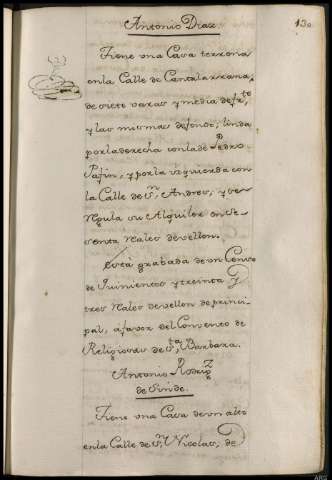 130
Antonio Diaz.
Tiene una Casa terrena
en la Calle de Cantalarrana,
de siete varas y media de fr.te
y las mismas de fondo; linda
por la derecha con la de Pedro
Patin, y por la izquierda con
la Calle de S.n Andres, y re-
gula su Alquiler en Se-
senta Reales de vellon.
Està grabada de un Censo
de Quinientos y treinta y
tres Reales de vellon de princi-
pal, a favor del Convento de
Religiosas de S.ta Barbara.
Antonio Rodrig.z
de Sinde.
Tiene una Casa de un alto
en la Calle de S.n Nicolas, de